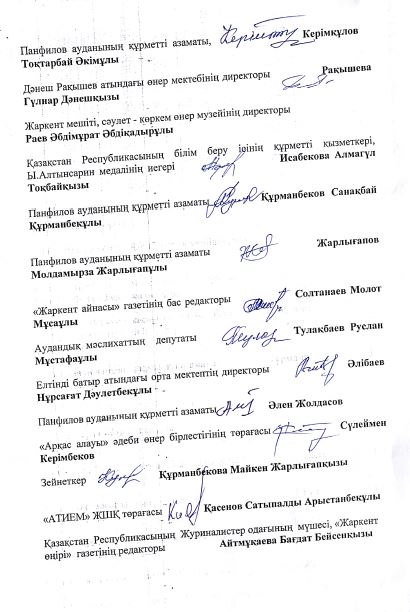 Панфилов ауданының құрметті азаматы, Керімқұлов
Тоқтарбай Әкімұлы
Дәнеш Рақышев атындағы өнер мектебінің директоры Рақышева
Гүлнар Дәнешқызы
Жаркент мешіті, сәулет - көркем өнер музейінің директоры
Раев Әбдімұрат Әбдіқадырұлы
Қазақстан Республикасының білім беру ісінің құрметті қызметкері,
Ы.Алтынсарин медалінің иегері Исабекова Алмагүл
Тоқбайқызы
Панфилов ауданының құрметті азаматы Құрманбеков Санақбай
Құрманбекұлы
Панфилов ауданының құрметті азаматы Жарлығапов
Молдамырза Жарлығапұлы
«Жаркент айнасы» газетінің бас редакторы Солтанаев Молот
Мұсаұлы
Аудандық мәслихаттың депутаты Тулакбаев Руслан
Мұстафаұлы
Елтінді батыр атындағы орта мектептің директоры Әлібаев
Нұрсағат Дәулетбекұлы
Панфилов ауданының құрметті азаматы Әлен Жолдасов
«Арқас алауы» әдеби өнер бірлестігінің төрағасы Сүлеймен
Керімбеков
Зейнеткер Құрманбекова Майкен Жарлығапқызы
«АТИЕМ» ЖШҚ төрағасы Қасенов Сатыпалды Арыстанбекұлы
Қазақстан Республикасының Журиналистер одағының мүшесі, «Жаркент
өңірі» газетінің редакторы Айтмұқаева Бағдат Бейсенқызы